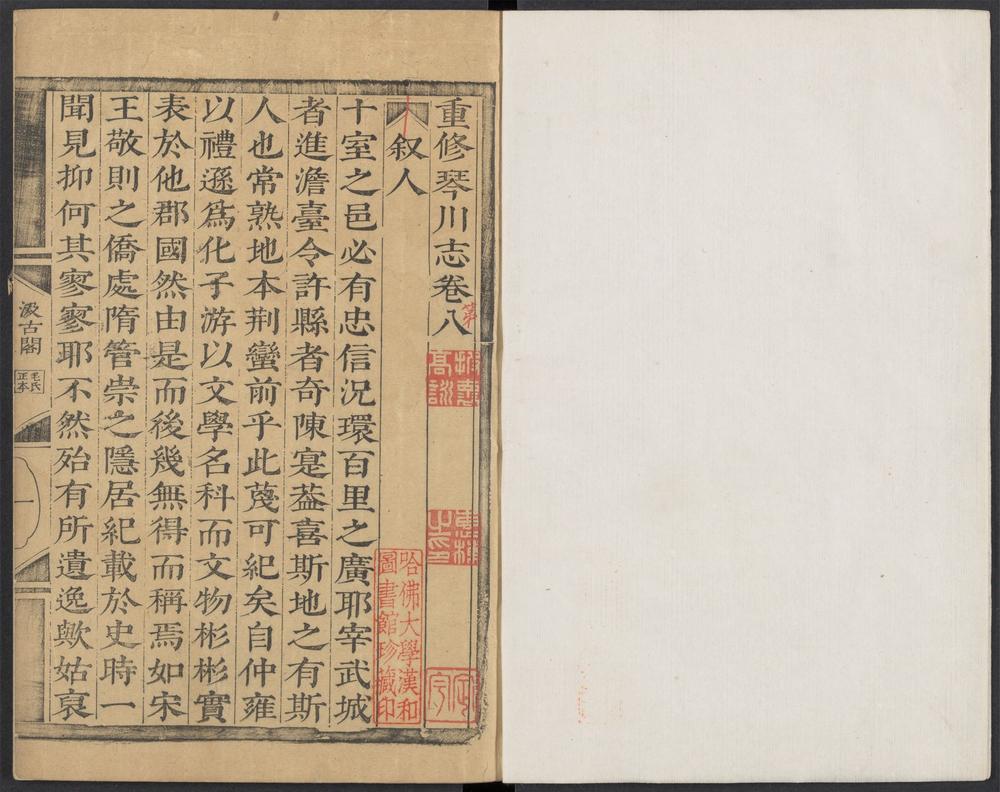 重修琴川志卷第八
叙人
十室之邑必有忠信況環百里之廣耶宰武城
者進澹臺令許縣者奇陳寔葢喜斯地之有斯
人也常熟地本荆蠻前乎此蔑可紀矣自仲雍
以禮遜爲化子游以文學名科而文物彬彬實
表於他郡國然由是而後幾無得而稱焉如宋
王敬則之僑處隋管崇之隱居紀載於史時一
聞見抑何其寥寥耶不然殆有所遺逸歟姑裒
汲古閣
毛氏
正本
一
惠棟
之印
定宇
哈佛大學漢和
圖書館珍藏印